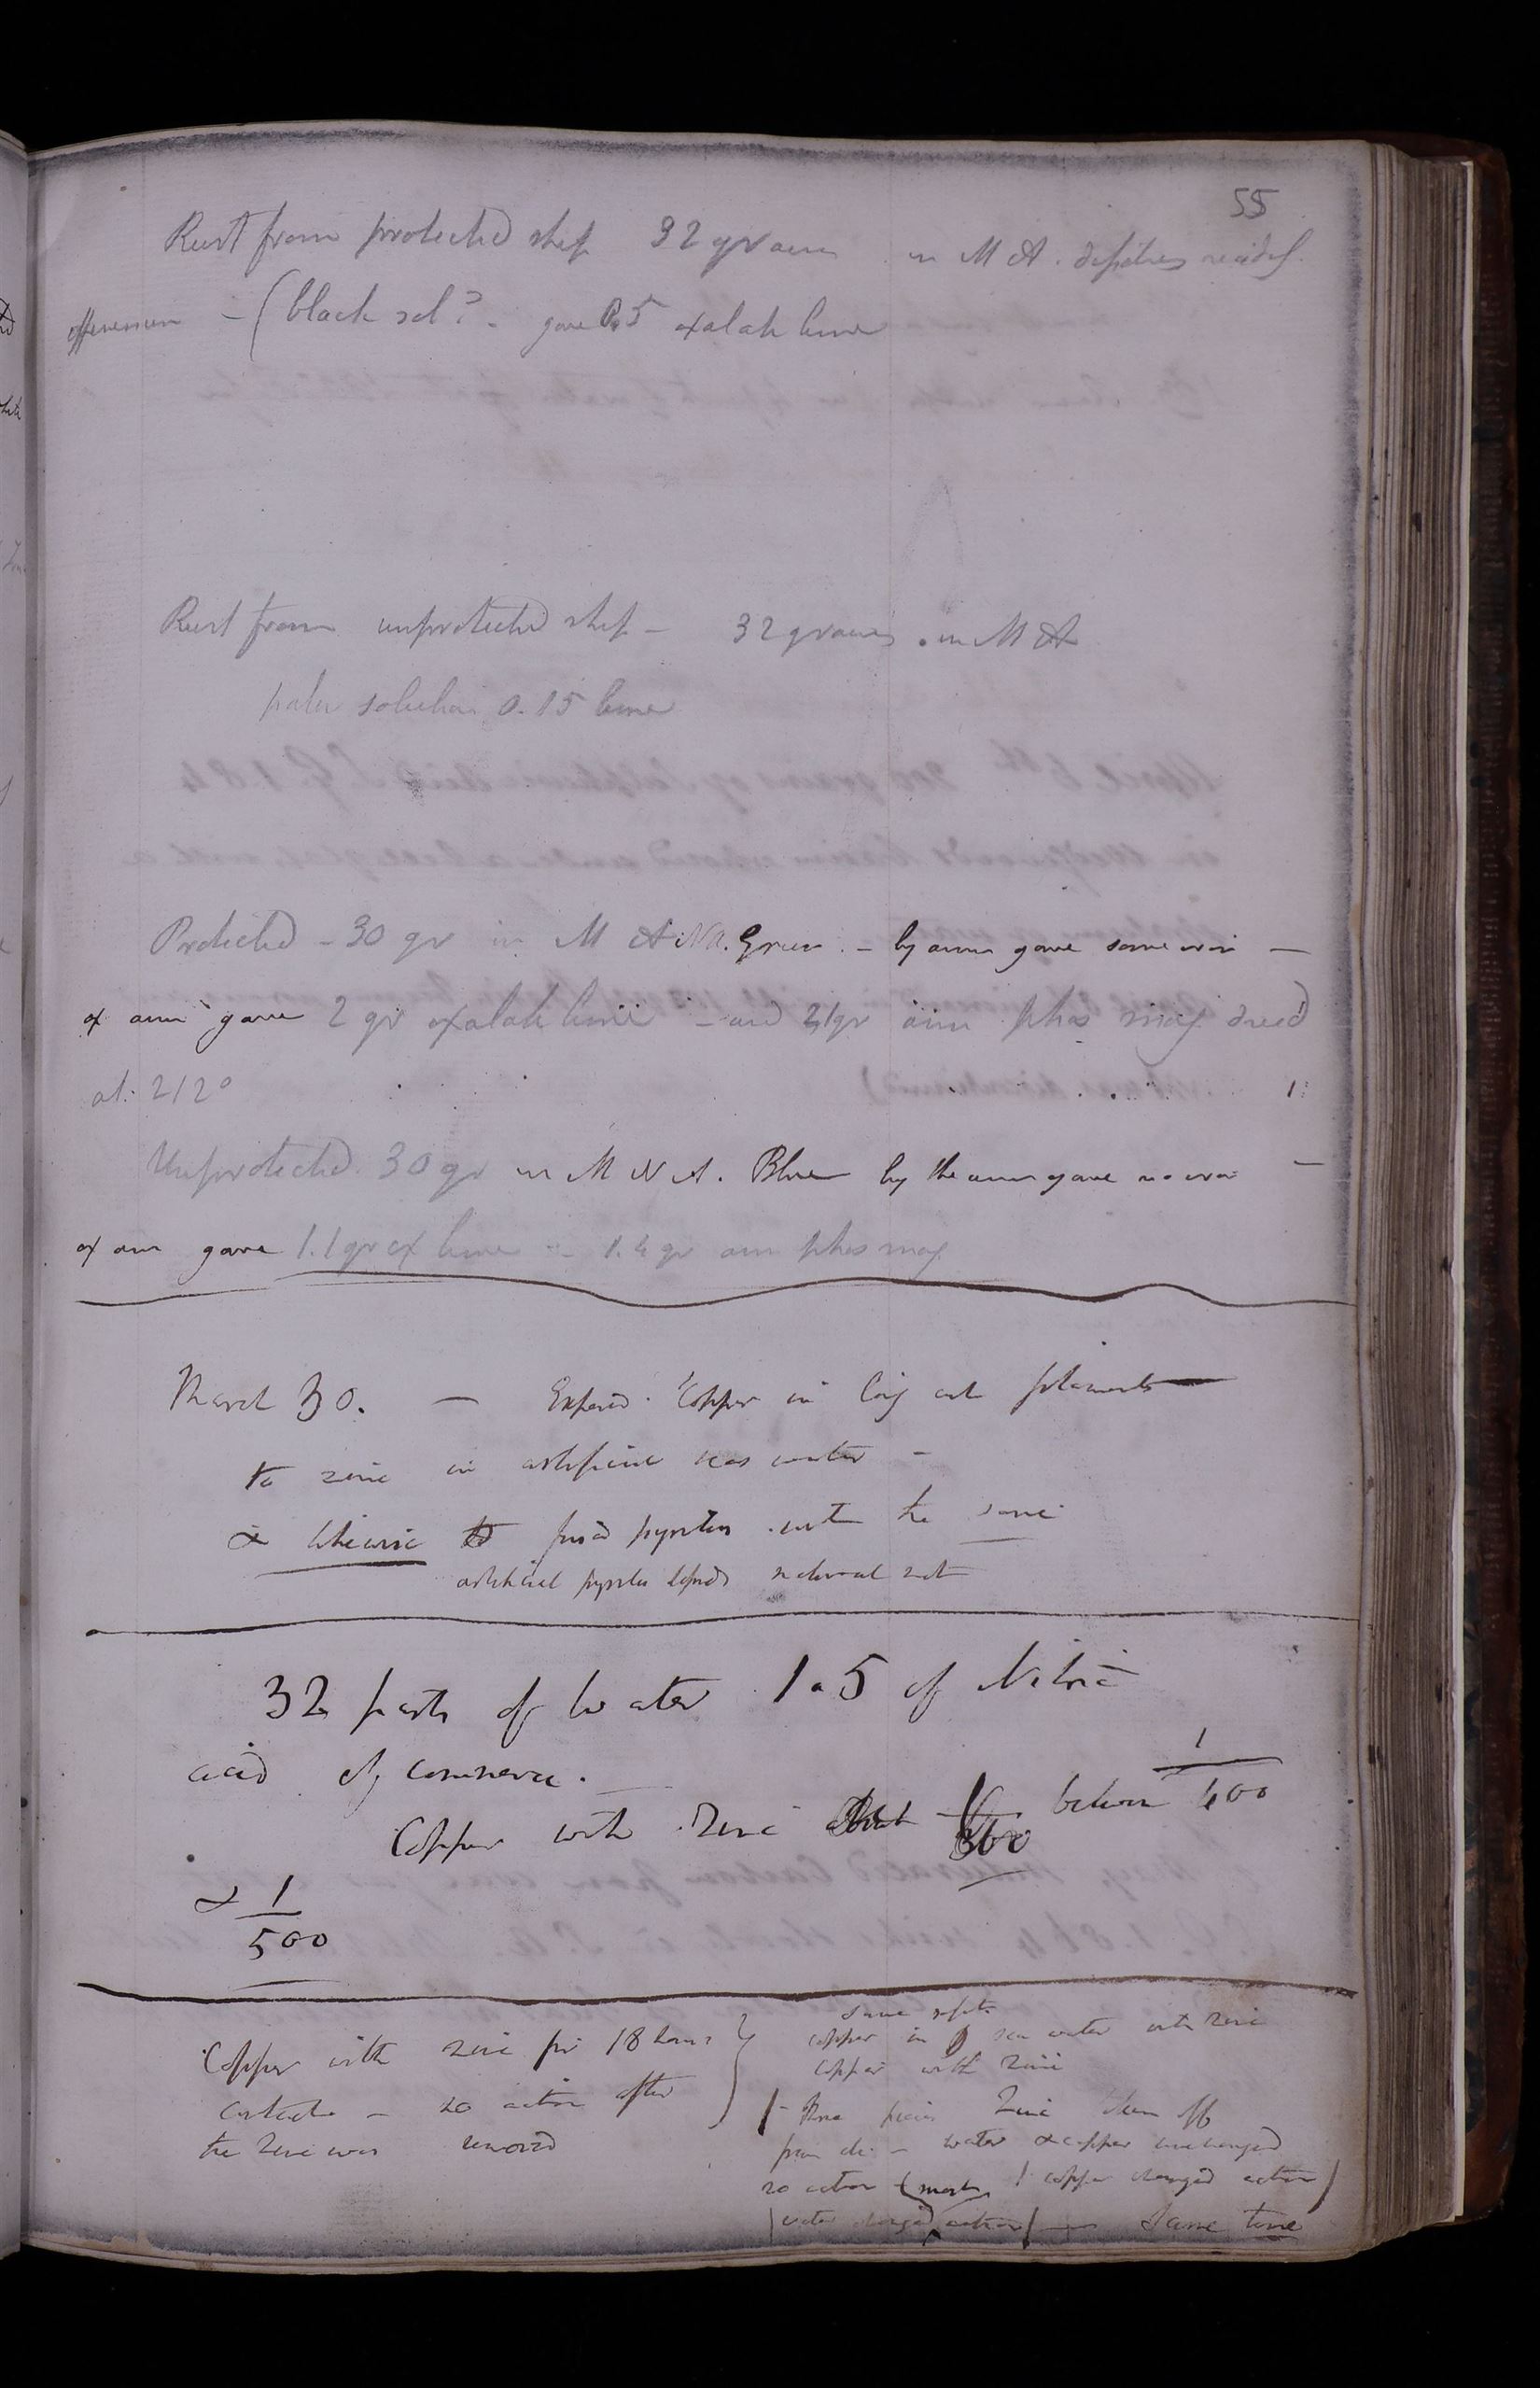 55
Rust from protected ship 32 grains in M A. dissolves readily
effervescence - (black sol? - gave 0.5 oxalate lime
Rust from unprotected ship - 32 grains in M A
paler solution 0.15 lime
Protected - 30 gr in M A N A. Green - by amm gave some iron -
ox amm gave 2 gr oxalate lime - and 21 gr amm phos mag dried
at 212°
Unprotected 30 gr in M N A. Blue by the amm gave no iron -
ox am gave 1.1 gr ox lime - 1.4 gr am phos mag
March 30. - Exposed Copper in long filaments
to zinc in artificial sea water -
& likewise to fused pyrites with the same
artificial pyrites natural not
32 parts of water 1.5 of Nitric
acid of commerce.
Copper with Zinc about 1/300 between 1/400
& 1/500
Copper with zinc for 18 hours }
contact - no action after
the Zinc was removed
Same
copper in sea water with zinc
copper with zinc
pieces Zinc then off
from do. - water & copper unchanged
no action (most / copper changed action)
(water changed action) - Same time